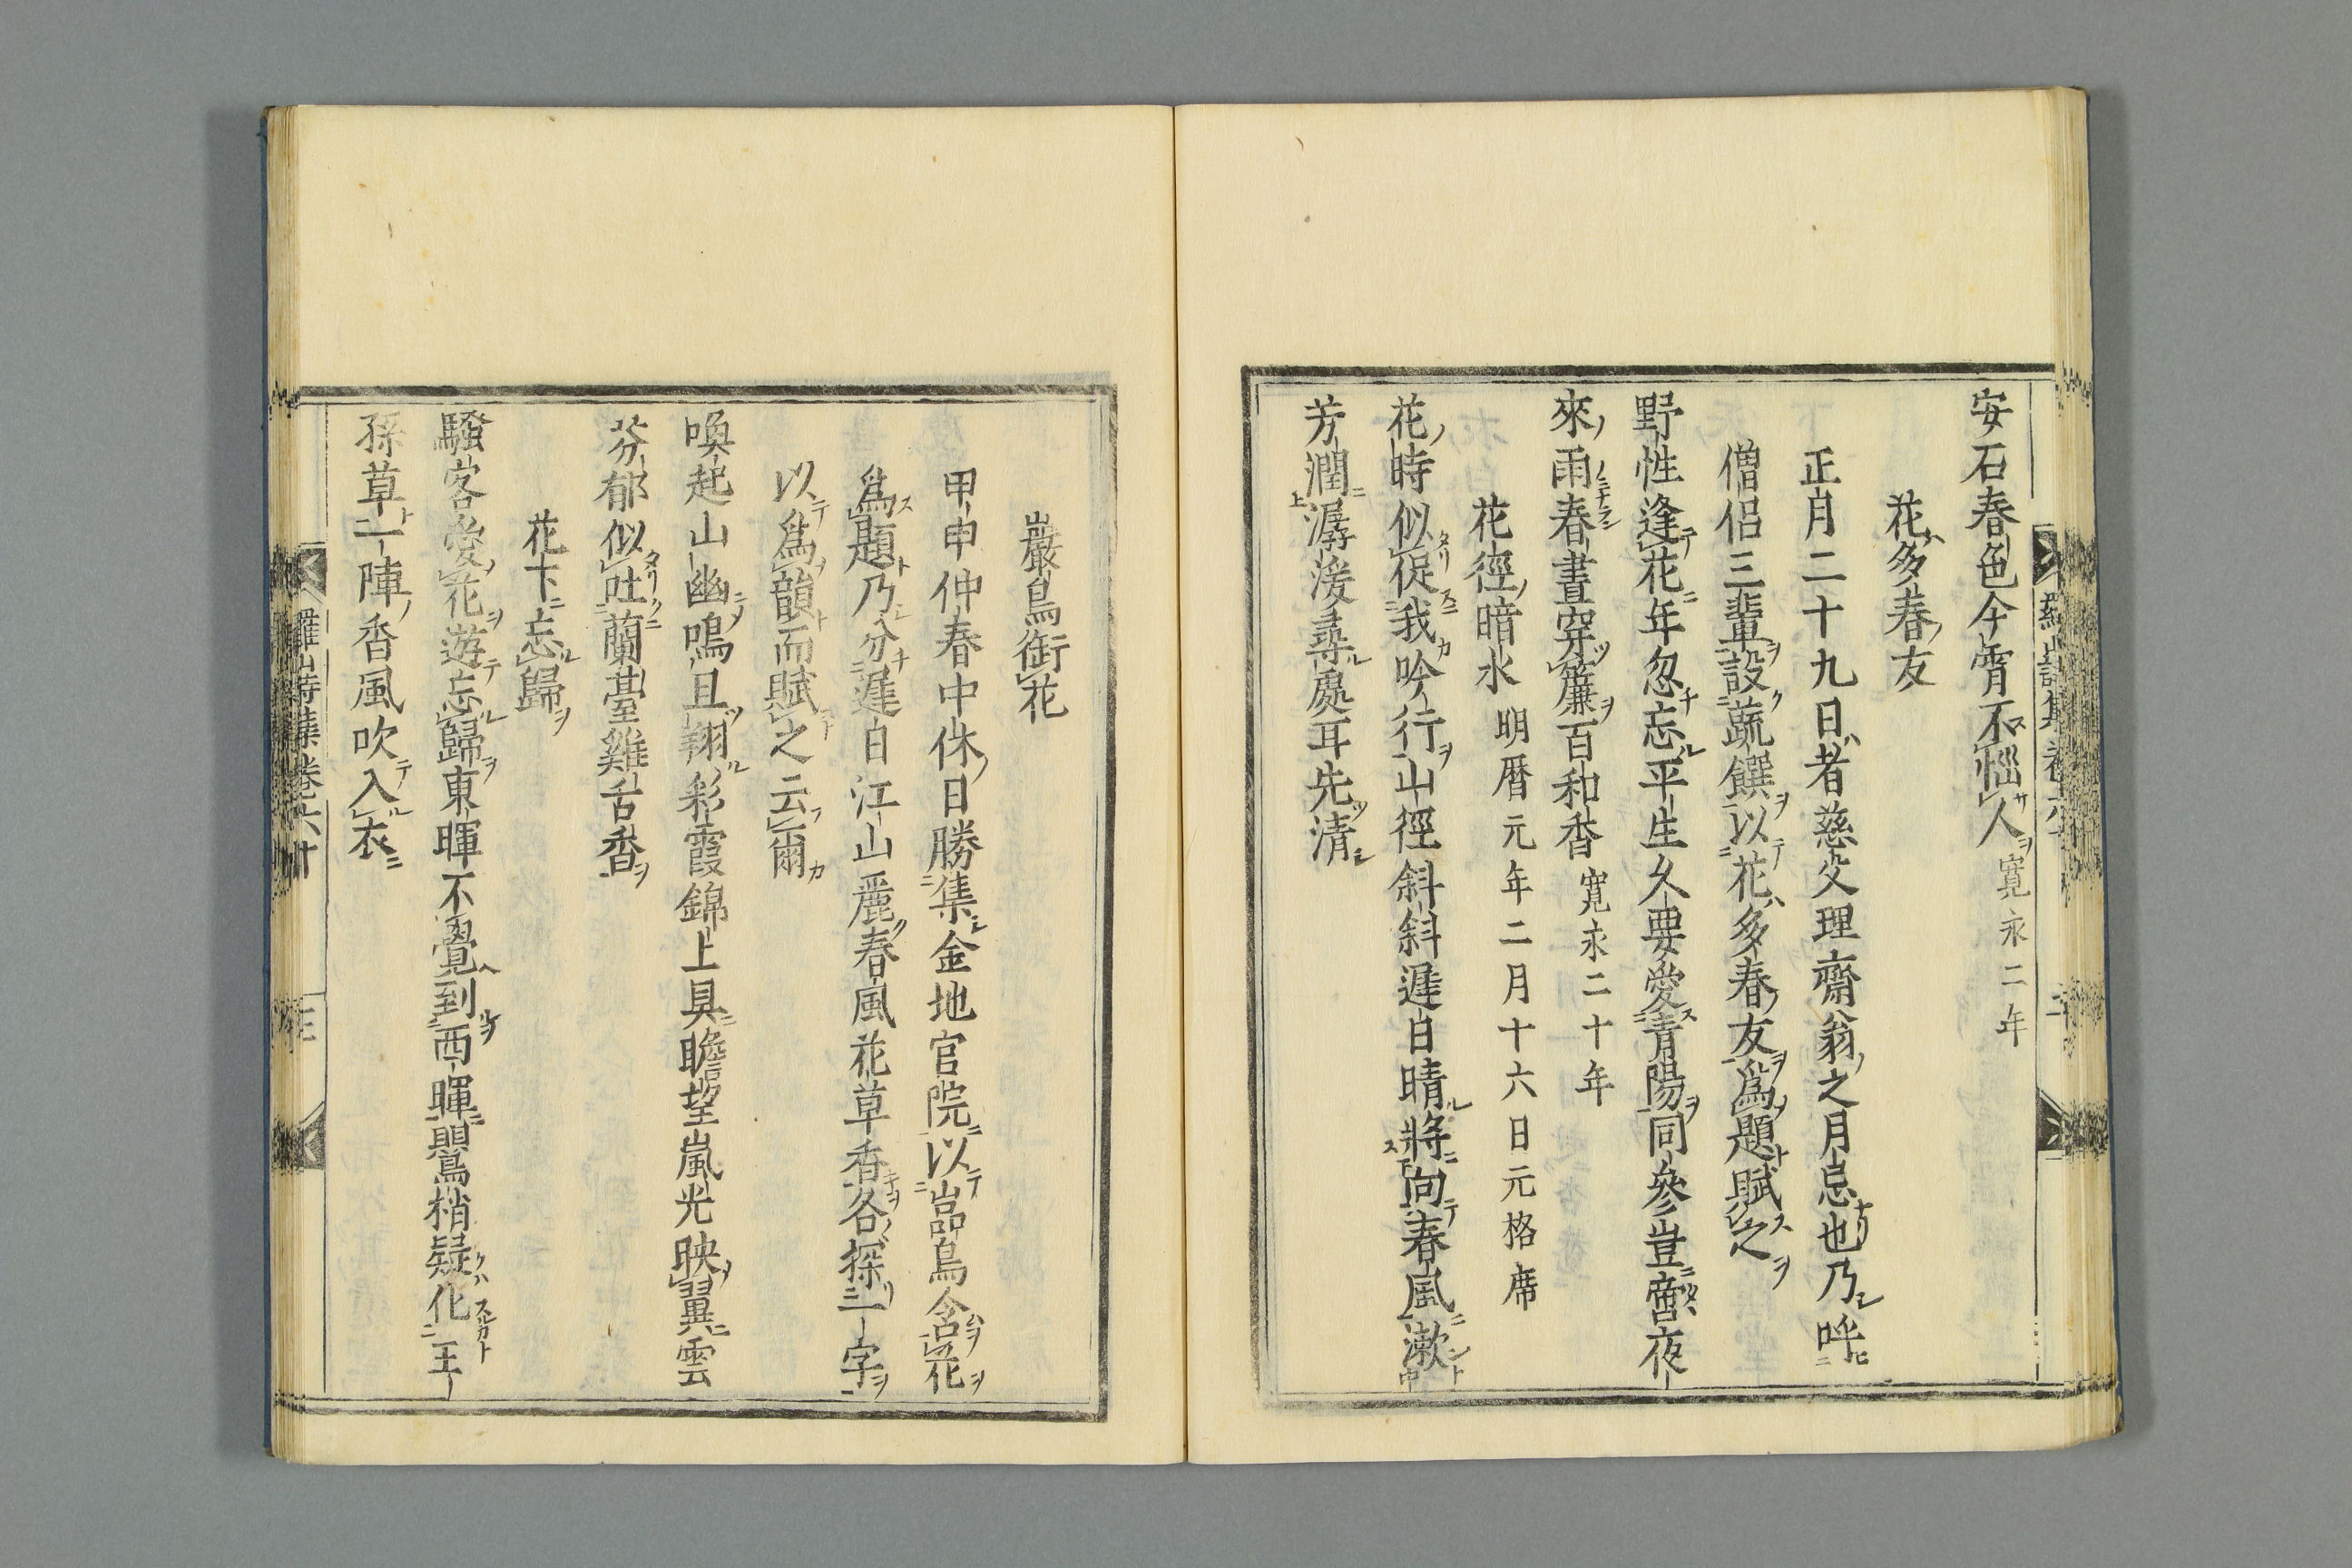 安石春色今宵不惱人 寛永二年
花多春友
正月二十九日者慈父理齋翁之月忌也乃呼
僧侶三輩設蔬饌以花多春友爲題賦之
野性逢花年忽忘平生久要愛青陽同參豈啻夜
來雨春晝穿簾百和香 寛永二十年
花徑暗水 明暦元年二月十六日元格席
花時似促我吟行山徑斜斜遲日晴將向春風漱
芳潤潺湲尋處耳先清
巖鳥銜花
甲申仲春中休日勝集金地官院以嵓鳥含花
爲題乃分遲日江山麗春風花草香各探一字
以爲韻而賦之云爾
喚起山幽鳴且翔彩霞錦上具瞻望嵐光映翼雲
芬郁似吐蘭臺雞舌香
花下忘歸
騷客愛花遊忘歸東暉不覺到西暉鸎梢疑化王
孫草一陣香風吹入衣
羅山詩集卷六十